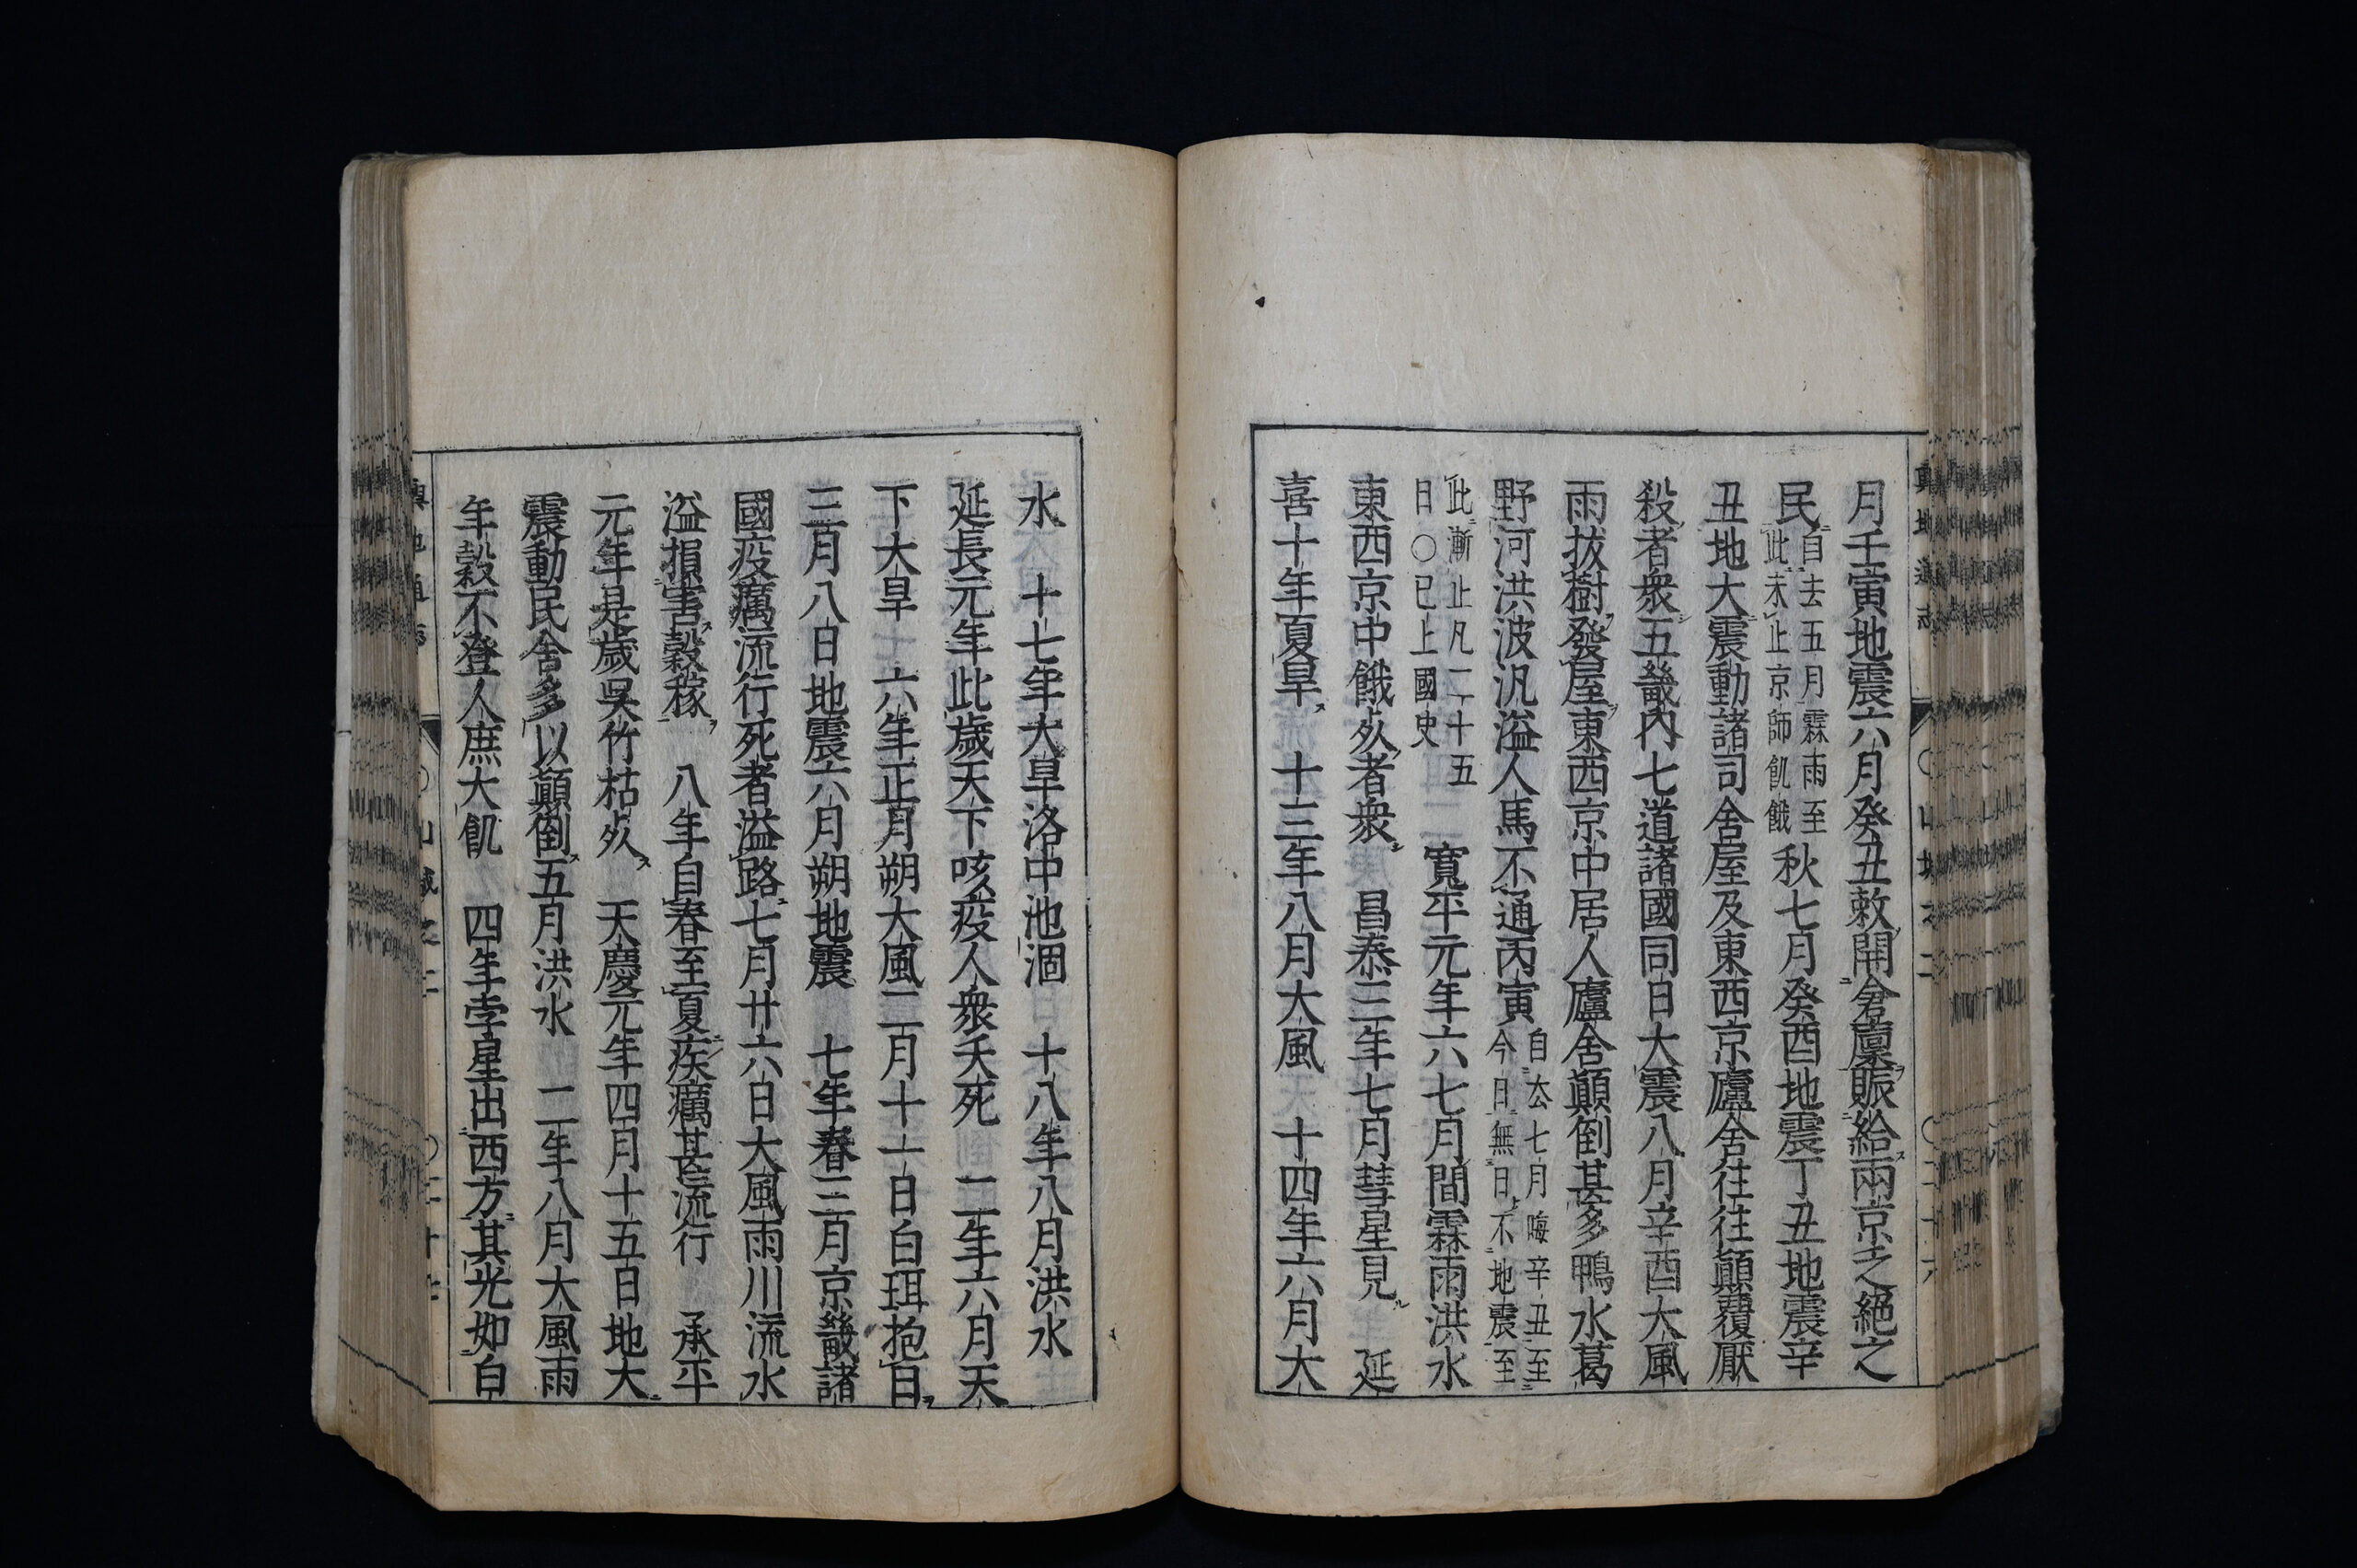 月壬寅地震六月癸丑敕開倉廩賑給兩京之絕之
民自去五月霖雨至
此未止京師飢餓秋七月癸酉地震丁丑地震辛
丑地大震動諸司舍屋及東西京廬舍往往顛覆厭
殺者衆五畿內七道諸國同日大震八月辛酉大風
雨拔樹發屋東西京中居人廬舍顛倒甚多鴨水葛
野河洪波汎溢人馬不通丙寅自去七月晦辛丑至
今日無日不地震至
此漸止凡二十五
日〇已上國史寬平元年六七月間霖雨洪水
東西京中餓死者衆 昌泰三年七月彗星見 延
喜十年夏旱 十三年八月大風 十四年六月大
水 十七年大旱洛中池涸 十八年八月洪水
延長元年此歲天下咳疫人衆夭死 二年六月天
下大旱 六年正月朔大風二月十一日白珥抱日
三月八日地震六月朔地震 七年春三月京畿諸
國疫癘流行死者溢路七月廿六日大風雨川流水
溢損害穀稼 八年自春至夏疾癘甚流行 承平
元年是歲吳竹枯死 天慶元年四月十五日地大
震動民舍多以顛倒五月洪水 二年八月大風雨
年穀不登人庶大飢 四年孛星出西方其光如白